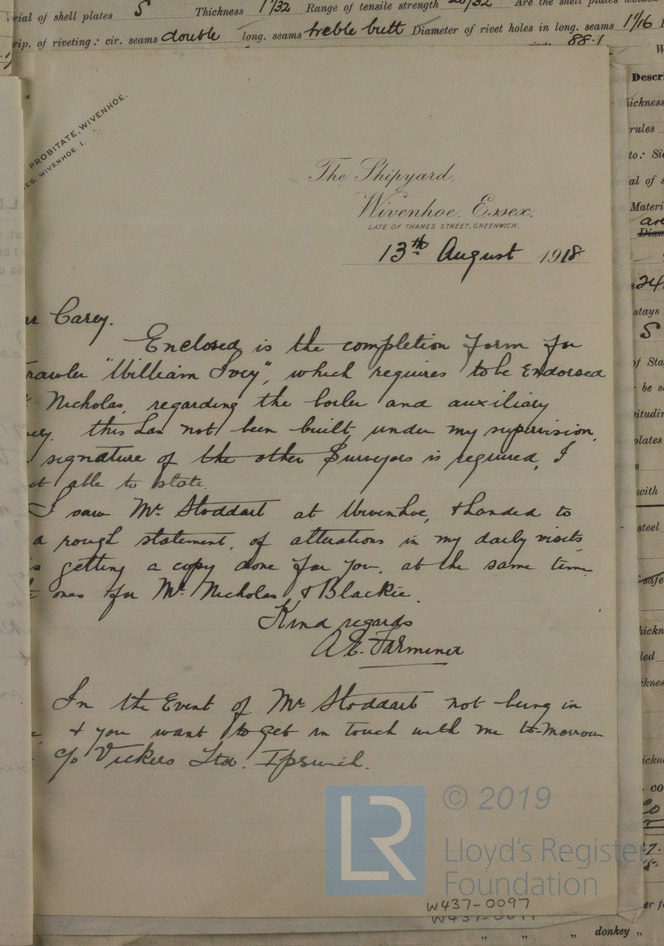 rial of shell plates S Thickness 1 1/32 Range of tensile strength 28/32 Are the shell plates
rip. of riveting: cir. seams double long. seams treble butt Diameter of rivet holes in long. seams 1 1/16
88.1
PROBITATE, WIVENHOE.
WIVENHOE. 1.
The Shipyard,
Wivenhoe, Essex,
LATE OF THAMES STREET, GREENWICH.
13th August 1918
r Carey.
Enclosed is the completion form for
rawler "William Ivey", which requires to be Endorsed
Nicholas, regarding the boiler and auxiliary
ery. this has not been built under my supervision,
signature of the other Surveyors is required, I
t able to state.
I saw Mr Stoddart at Wivenhoe, & handed to
a rough statement, of alterations in my daily visits
s getting a copy done for you, at the same time
ones for Mr Nicholas & Blackie.
Kind regards
A.E. Farminer
In the Event of Mr Stoddart not being in
& you want to get in touch with me to-morrow
c/o Vickers Ltd. Ipswich.
LR
© 2019
Lloyd's Register
Foundation
W437-0097
Descri
hickness
rules
to: Si
al of s
Materi
stays
S
of Sta
be s
itudin
plates
s
with
steel
safe
hick
led
kness
donkey "